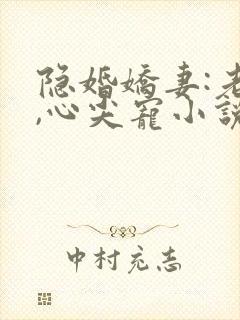 隐婚嬌妻:老
,心尖寵小説
中村充志